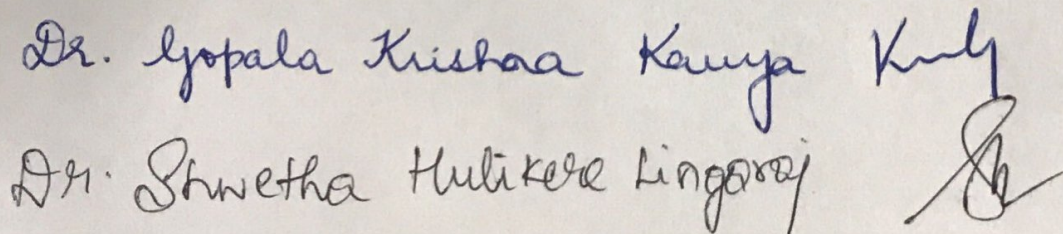 Dr. Gopala Krishna Kavya
Dr. Shwetha Hulikere Lingaraj